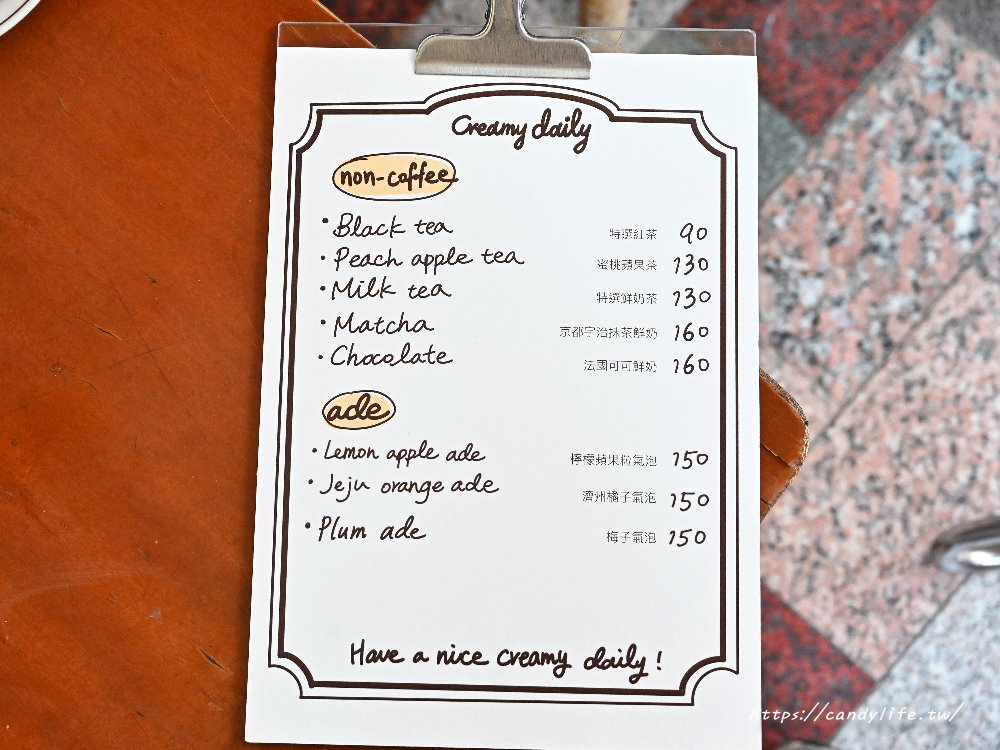 Creamy daily
non-coffee
• Black tea 特選紅茶 90
• Peach apple tea 蜜桃蘋果茶 130
• Milk tea 特選鮮奶茶 130
• Matcha 京都宇治抹茶鮮奶 160
• Chocolate 法國可可鮮奶 160
ade
• Lemon apple ade 檸檬蘋果粒氣泡 150
• Jeju orange ade 濟州橘子氣泡 150
• Plum ade 梅子氣泡 150
Have a nice creamy daily !
https://candylife.tw/